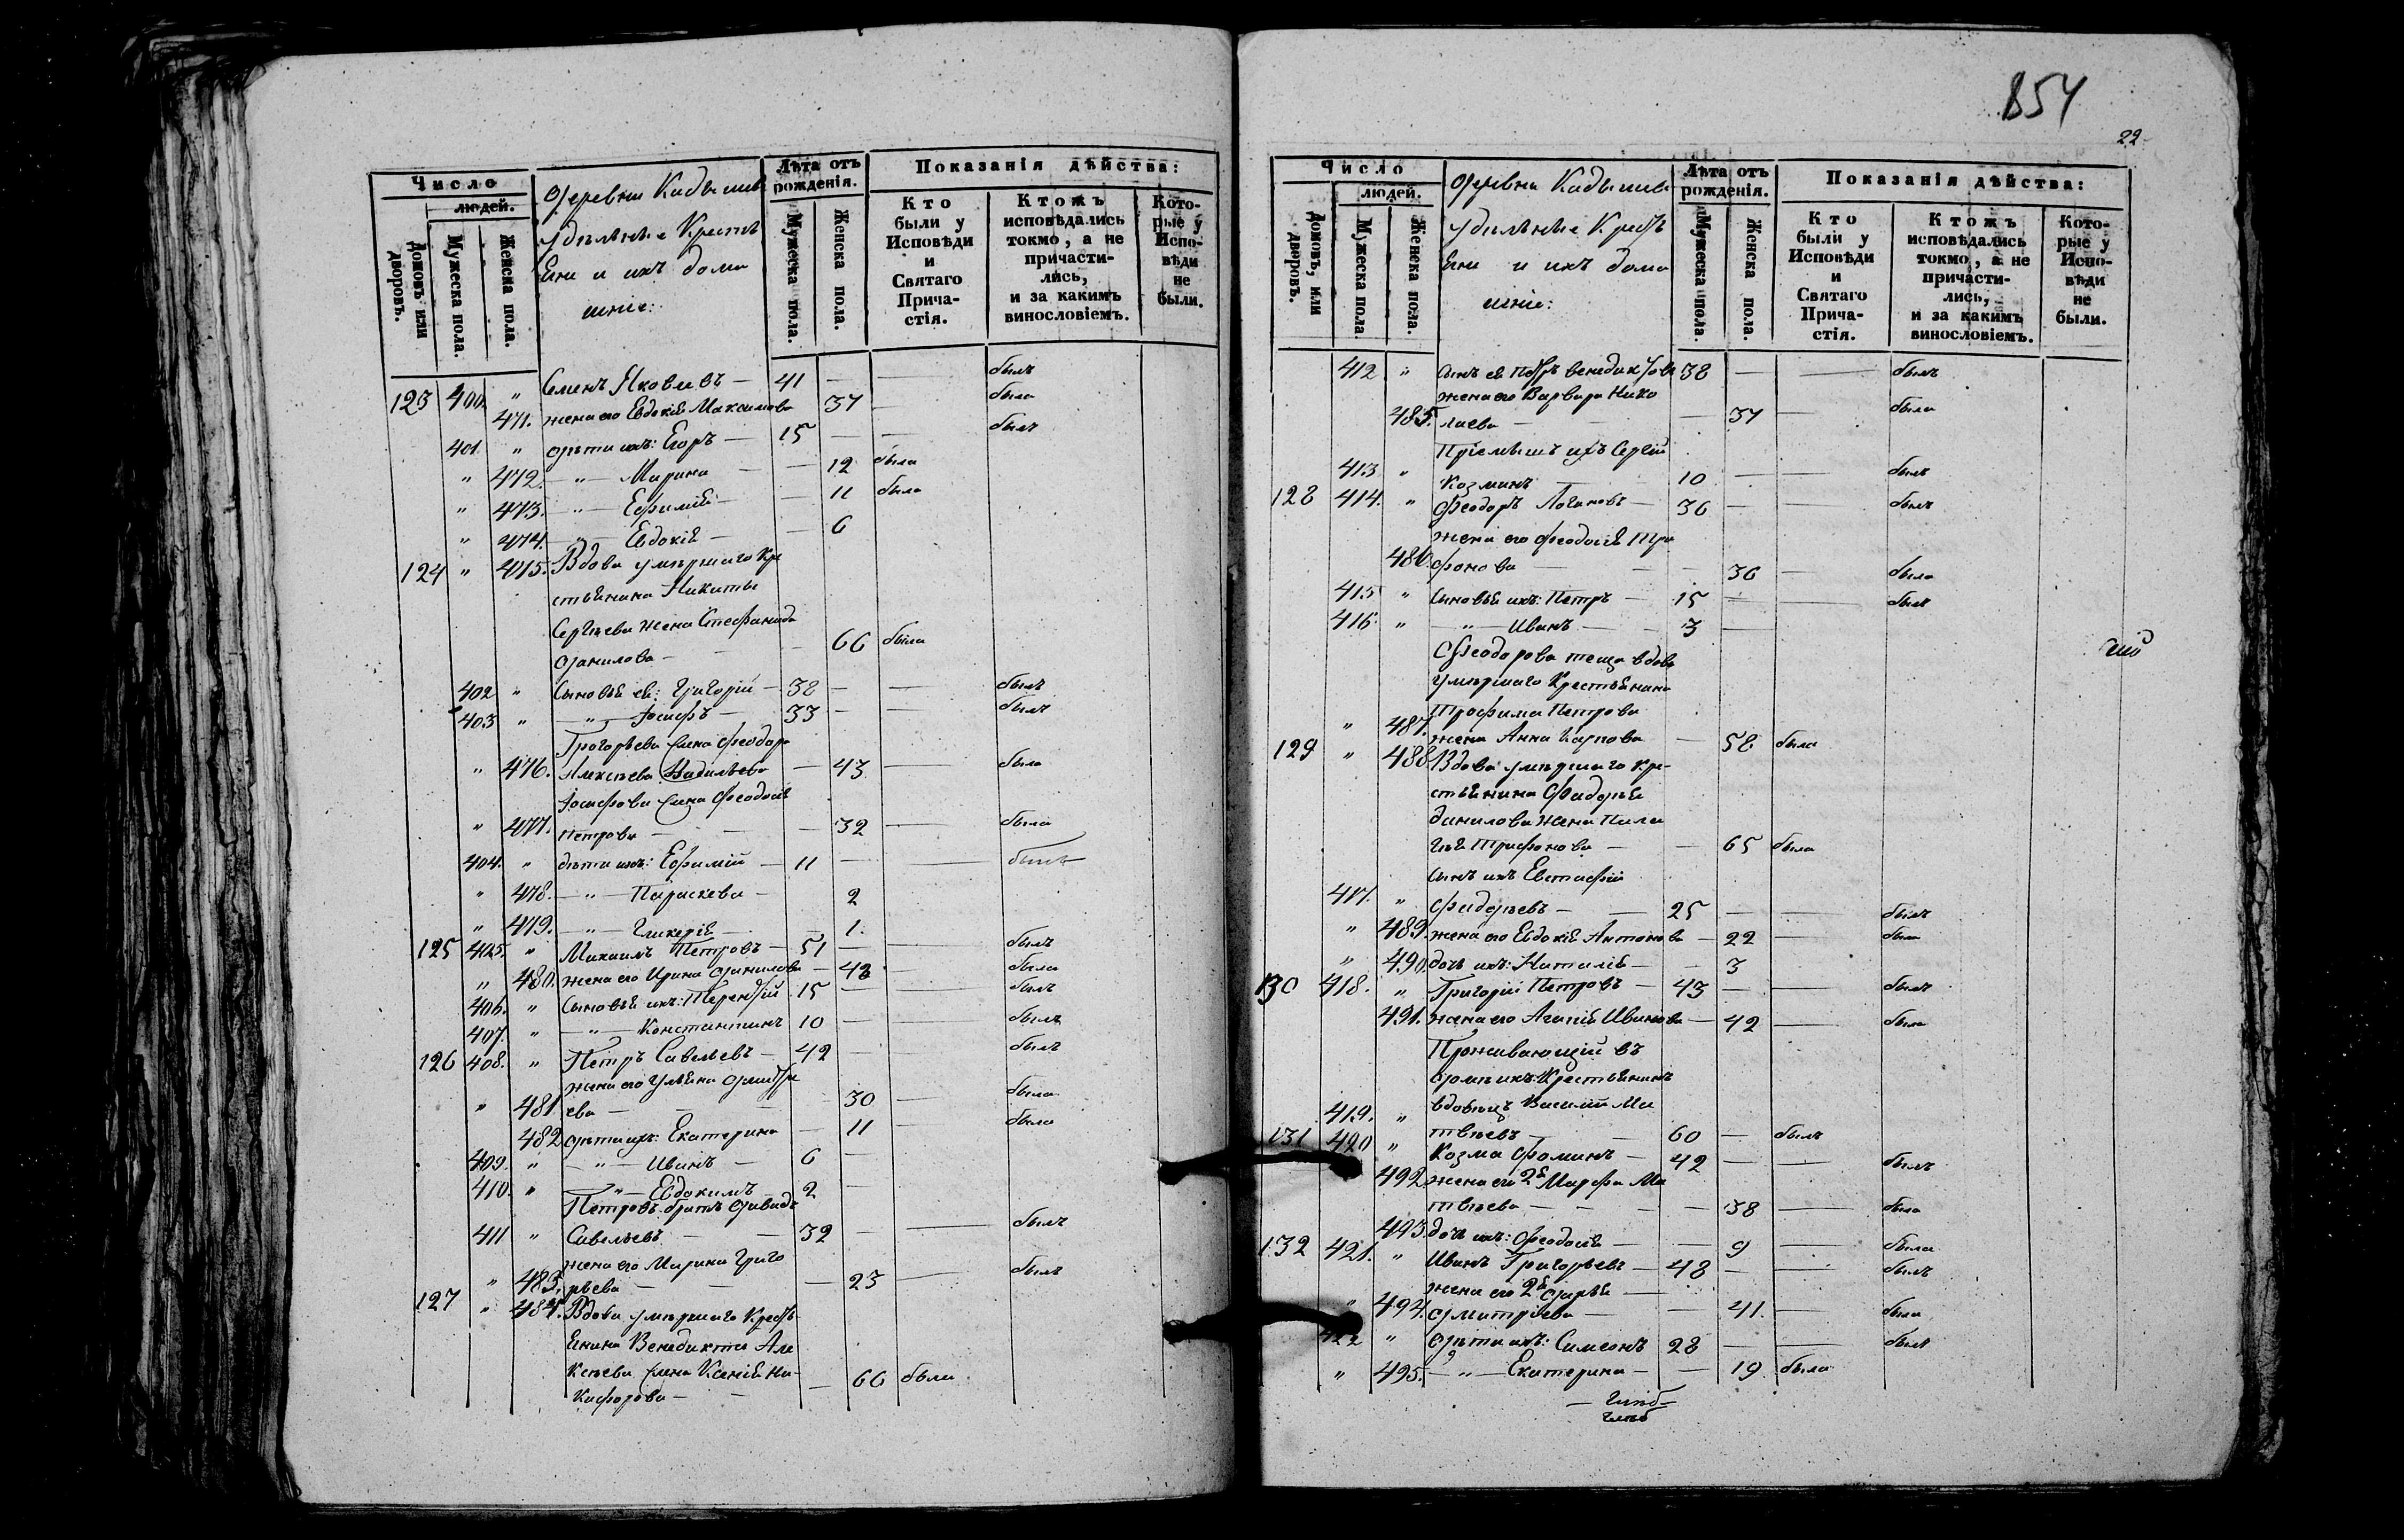 Число
людей.
домовъ или дворовъ.
Мужеска пола.
Женска пола.
Деревни
Удѣльные Кресть
яне и ихъ дома
шніе:
Лѣта отъ рожденія.
Мужеска пола.
Женска пола.
Показанія дѣйства:
Кто были у Исповѣди и Святаго Прича-стія.
Ктожъ исповѣдались токмо, а не причасти-лись, и за какимъ винословіемъ.
Кото-рые у Испо-вѣди не были.
123 400. " Яковлевъ — 41 — — былъ
471. жена его Евдокія Максимова 37 — была
401. " дѣти ихъ: Егоръ — 15 — — былъ
" 472. — " — Марина — — 12 была
" 473. — " — Ефимія — — 11 была
" 474. — " — Евдокія — — 6
124 " 475. Вдова умершаго Кре
стьянина Никиты
Сергѣева жена Стефанида
Данилова — — — 66 была
402 " Сыновья ея: Григорій — 38 — — былъ
403 " — " — Іосифъ — 33 — — былъ
Григорьева жена Феодора
" 476. Алексѣева — 43 — была
Іосифова жена Феодосія
" 477. Петрова — — — 32 — была
404. " дѣти ихъ: Ефимій — 11 — — былъ
" 478. — " — Параскева — 2
" 479. — " — Гликерія — — 1.
125 405. " Михаилъ Петровъ — 51 — — былъ
" 480. жена его Ирина Данилова — 48 — была
406. " Сыновья ихъ: Терентій 15 — — былъ
407. " — " — Константинъ 10 — — былъ
126 408. " Петръ Савельевъ — 42 — былъ
жена его Ульяна Дмитрі
" 481. ева — — — 30 — была
482 дѣти ихъ: Екатерина — 11 — была
409. " — " — Иванъ — 6 —
410. " — " — Евдокимъ 2 —
Петровъ братъ Давидъ
411 " Савельевъ — — 32 — — былъ
жена его Марина Григо
" 483. рьева — — — 23 — былъ
127 " 484. Вдова умершаго Кресть
янина Венедикта Але
ксѣева жена Ксенія Ни-
кифорова — — — 66 была
854
22
Число
людей.
домовъ, или дворовъ.
Мужеска пола
Женска пола.
Деревни
Удѣльные Кресть
яне и ихъ дома
шніе:
Лѣта отъ рожденія.
Мужеска пола.
Женска пола.
Показанія дѣйства:
Кто были у Исповѣди и Святаго Прича-стія.
Ктожъ исповѣдались токмо, а не причасти-лись, и за какимъ винословіемъ.
Кото-рые у Испо-вѣди не были.
412 " Сынъ ея Петръ Венедиктовъ 38 — — былъ
жена его Варвара Нико
485. лаева — — 37 — была
Пріемышъ ихъ Сергій
413 " Козминъ — 10 — — былъ
128 414. " Феодоръ Логиновъ — 36 — — былъ
жена его Феодосія Три
486. фонова — — — 36 — была
415 " Сыновья ихъ: Петръ — 15 — — былъ
416. " — " — Иванъ — 3 —
Феодорова теща вдова
умершаго Крестьянина
Трофима Петрова
" 487. жена Анна Карпова — 58 была
129 " 488 Вдова умершаго Кре-
стьянина
Данилова жена Пела
гія Трифонова — — 65 была
Сынъ ихъ Евстафій
417. " — — 25 — — былъ
" 489. жена его Евдокія Антонова — 22 — была
" 490. дочь ихъ: Наталія — — 3
130 418. " Григорій Петровъ — 43 — — былъ
491. жена его Агапія Иванова — 42 — была
Проживающій въ
домѣ ихъ Крестьянинъ
вдовецъ Василій Ма
419. " твѣевъ — — 60 — былъ
131 420 " Козма Фоминъ — 42 — — былъ
492. жена его 2я Марфа Ма
твѣева — — — 38 — была
493. дочь ихъ: Феодосія — — 9 — была
132 421. " Иванъ Григорьевъ — 48 — — былъ
жена его 2я Дарья —
" 494. Дмитріева — — 41. — была
422 " дѣти ихъ: Симеонъ 28 — — былъ
" 495. — " — Екатерина — — 19 была